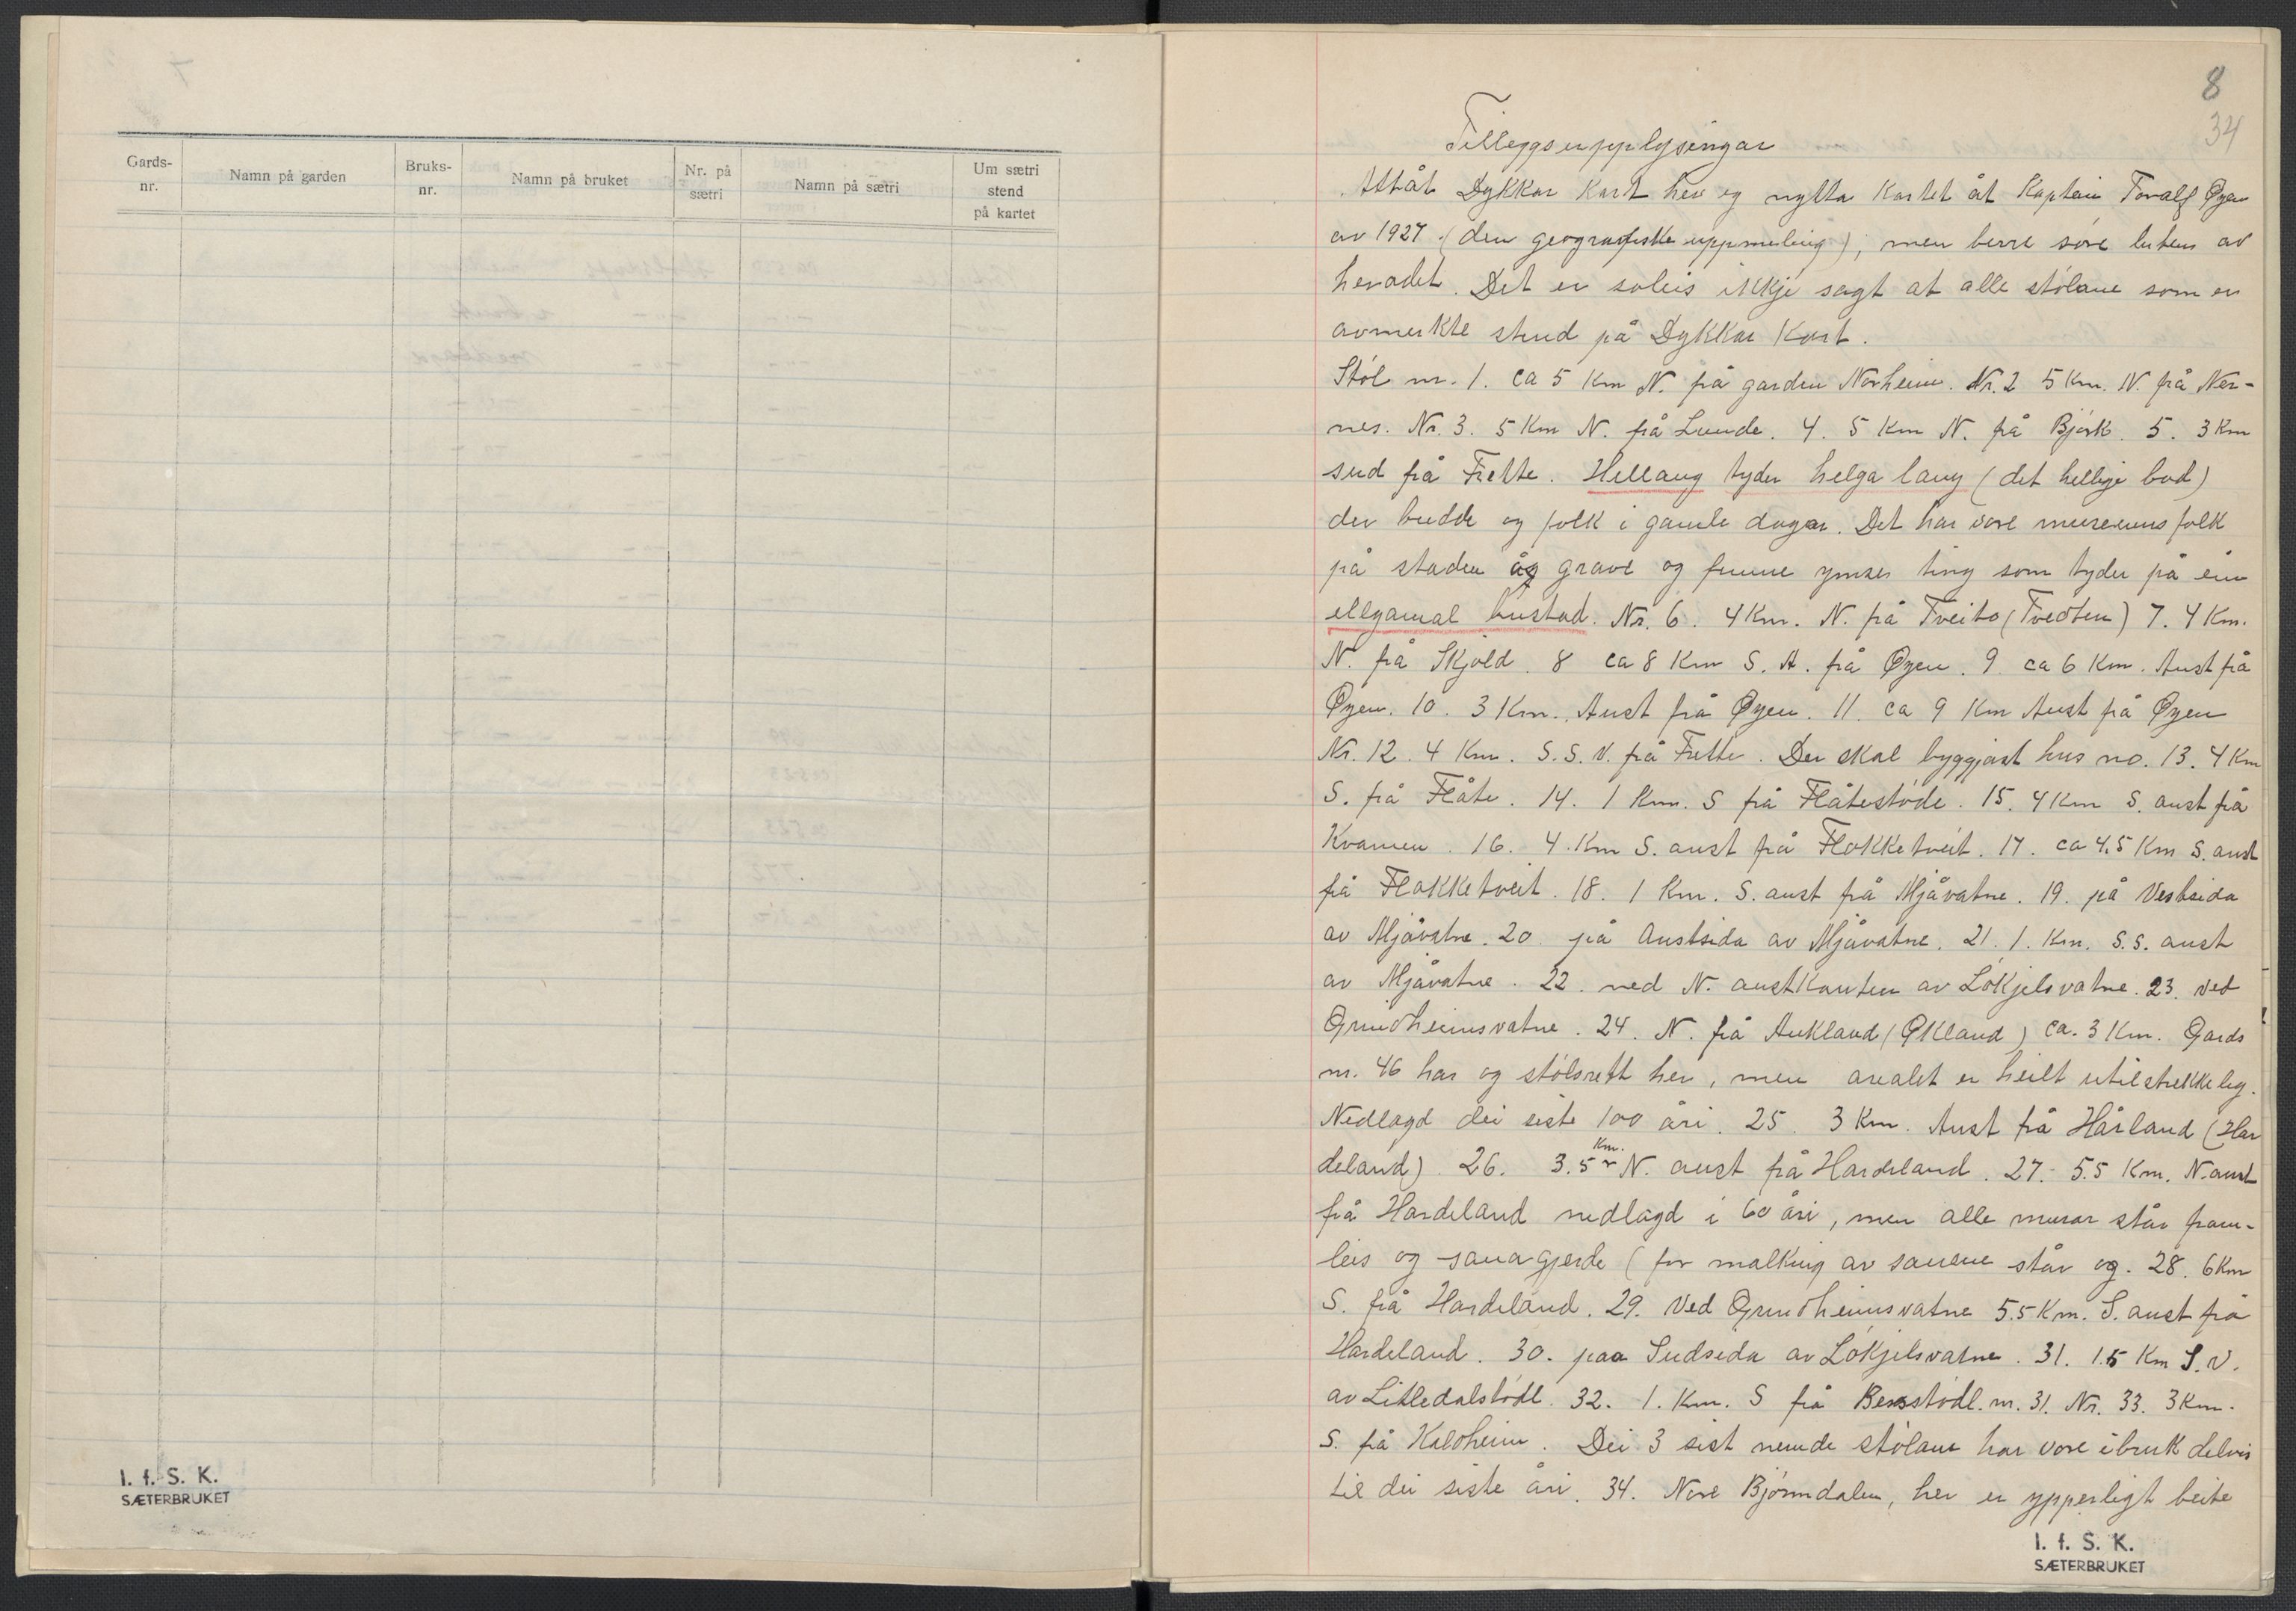 Gards-
nr.
Namn på garden
Bruks-
nr.
Namn på bruket
Nr. på
sætri
Namn på sætri
Um sætri
stend
på kartet
I. f. S. K.
SÆTERBRUKET
8
34
Tilleggsupplysingar
Attåt Dykkar Kart hev eg nytta Kartet åt Kaptein Toralf Øyen
av 1927 (den geografiske uppmeling), men berre søre luten av
heradet. Det er soleis ikkje sagt at alle stølane som er
avmerkte stend på Dykkar Kart.
Støl nr. 1. ca 5 Km N. frå garden Norheim. Nr. 2 5 Km. N. frå Ner-
nes. Nr. 3. 5 Km N. frå Lunde. 4. 5 Km N. frå Bjørk. 5. 3 Km
sud frå Frette. Hellaug tyder helga laug (det hellige bad)
der budde og folk i gamle dagar. Det har vore museumsfolk
på staden og grave og funne ymse ting som tyder på ein
ellgamal bustad. Nr. 6. 4 Km. N. frå Tveito (Tvedten) 7. 4 Km.
N. frå Skjold. 8 ca 8 Km S. A. frå Øyen. 9 ca 6 Km. Aust frå
Øyen. 10. 3 Km. Aust frå Øyen. 11. ca 9 Km Aust frå Øyen
Nr. 12. 4 Km. S. S. V. frå Frette. Der skal byggjast hus no. 13. 4 Km
S. frå Flåte. 14. 1 Km. S frå Flåtestøde. 15. 4 Km S. aust frå
Kvamen. 16. 4. Km S. aust frå Flokketveit. 17. ca 4,5 Km S. aust
frå Flokketveit. 18. 1 Km. S. aust frå Mjåvatne. 19. på Vestsida
av Mjåvatne. 20. på Austsida av Mjåvatne. 21. 1. Km. S. S. aust
av Mjåvatne. 22. ved N. austkanten av Løkjelsvatne. 23. ved
Grindheimsvatne. 24. N. frå Aukland (Økland) ca. 3 Km. Gards
nr. 46 har og stølsrett her, men arealet er heilt utilstrekkeleg.
Nedlagd dei siste 100 åri. 25. 3 Km. Aust frå Håland (Har
deland). 26. 3.5 Km. N. aust frå Hardeland. 27. 5.5 Km. N. aust
frå Hardeland nedlagd i 60 åri, men alle murar står fram-
leis og sauagjerde (for malking av sauene står og. 28. 6 Km
S. frå Hardeland. 29. Ved Grindheimsvatne 5.5 Km. S. aust frå
Hardeland. 30. paa Sudsida av Løkjelsvatne. 31. 1.5 Km S. V.
av Litledalstødl. 32. 1. Km. S frå Bersstødl. nr. 31. Nr. 33. 3 Km.
S. frå Kaldheim. Dei 3 sist nemde stølane har vore i bruk delvis
til dei siste åri. 34. Nore Bjørndalen, her er ypperligt beite
I. f. S. K.
SÆTERBRUKET